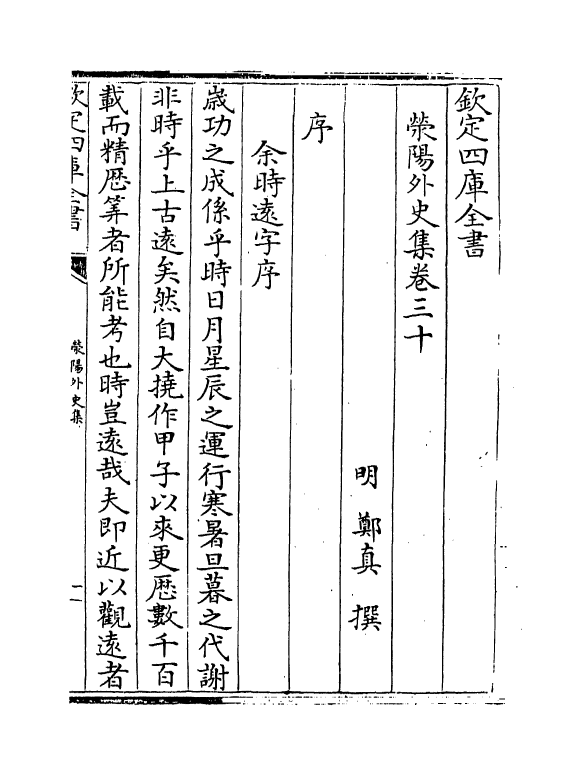 欽定四庫全書
滎陽外史集卷三十
明 鄭真 撰
序
余時遠字序
歳功之成係乎時日月星辰之運行寒暑旦暮之代謝
非時乎上古遠矣然自大撓作甲子以來更歴數千百
載而精歴筭者所能考也時豈遠哉夫即近以觀遠者
欽定四庫全書
滎陽外史集
一